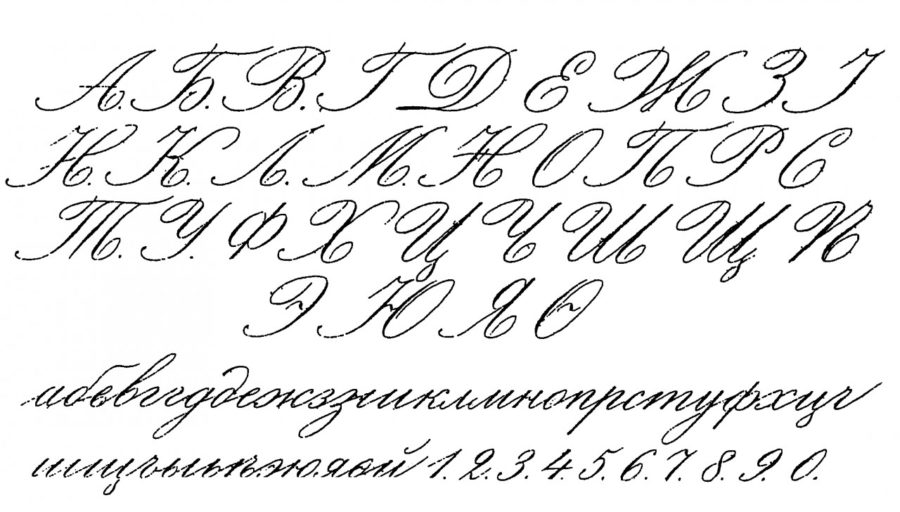 А. Б. В. Г Д Е Ж З І
Н. К. Л. М. Н О П Р С
Т. У. Ф Х Ц Ч Ш Щ И
Э Ю Я Ѳ
абвгдджзиклмнопрстуфхцч
шщъыьѣэюяѳй 1. 2. 3. 4. 5. 6. 7. 8. 9. 0.